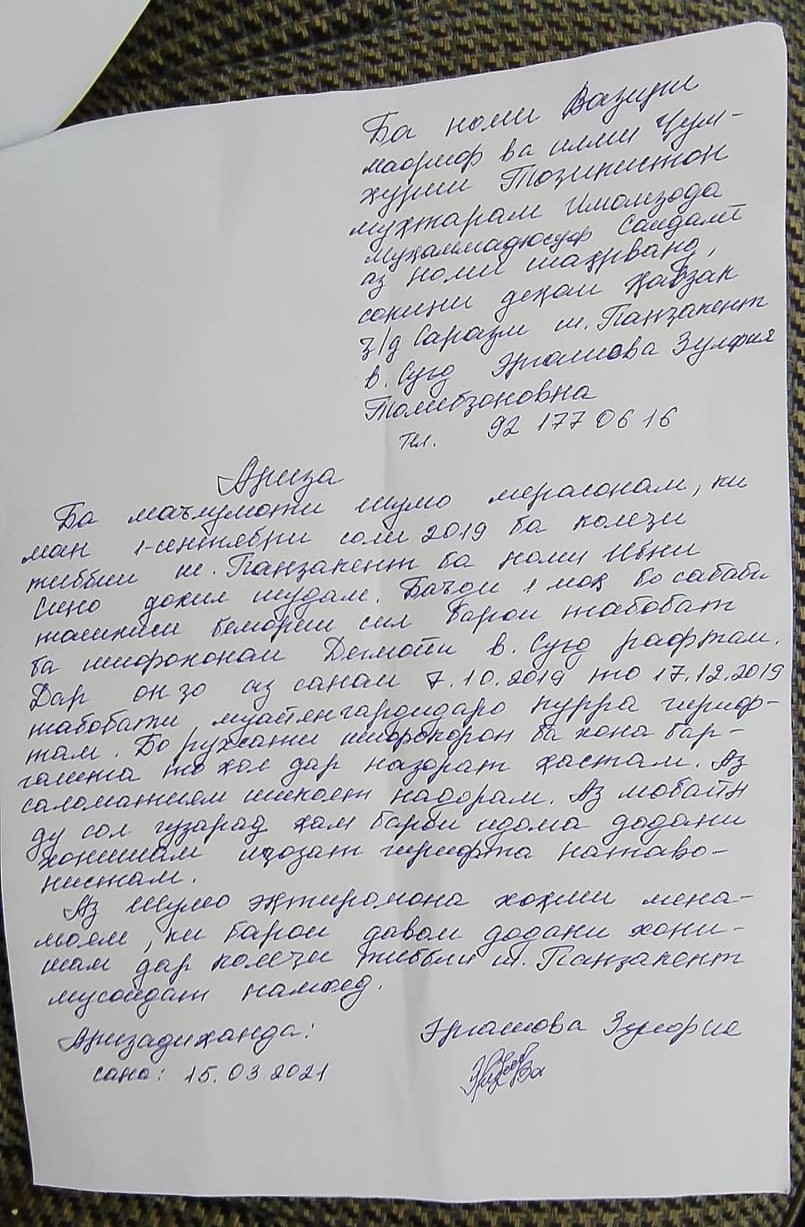 Ба номи Вазири
маориф ва илми Ҷум-
ҳурии Тоҷикистон
муҳтарам Имомзода
Муҳаммадюсуф Саидалӣ
аз номи шаҳрванд,
сокини деҳаи Ҳавзак
ҷ/д Саразм ш. Панҷакент
в. Суғд Эргашова Зулфия
Толибҷоновна
Тел. 92 177 06 16
Ариза
Ба маълумоти шумо мерасонам, ки
ман 1-сентябри соли 2019 ба колеҷи
тиббии ш. Панҷакент ба номи Ибни
Сино дохил шудам. Баъди 1 моҳ бо сабаби
ташхиси бемории сил барои табобат
ба шифохонаи Деҳмойи в. Суғд рафтам.
Дар онҷо аз санаи 7.10.2019 то 17.12.2019
табобати муайянгардидаро пурра гириф-
там. Бо рухсати шифокорон ба хона бар-
гашта то ҳол дар назорат ҳастам. Аз
саломатиям шикоят надорам. Аз мобайн
ду сол гузарад ҳам барои идома додани
хонишам иҷозат гирифта натаво-
нистам.
Аз шумо эҳтиромона хоҳиш мена-
моям, ки барои давом додани хони-
шам дар колеҷи тиббии ш. Панҷакент
мусоидат намоед.
Аризадиҳанда: Эргашова Зулфия
сана: 15.03.2021